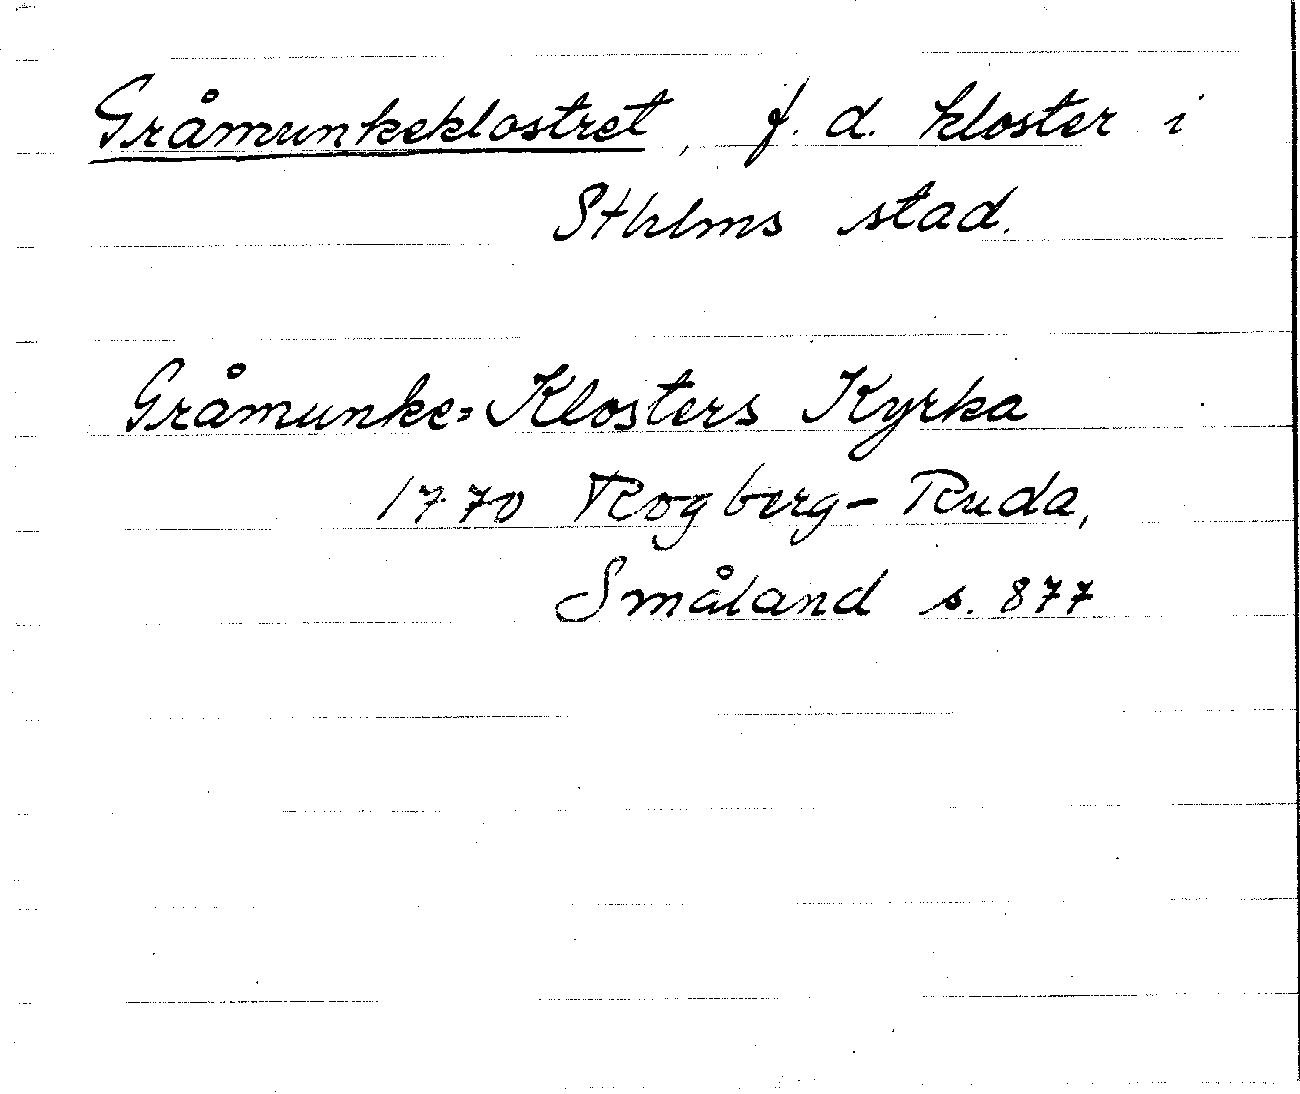 Gråmunkeklostret, f. d. kloster i
Sthlms stad.
Gråmunke=Klosters Kyrka
1770 Rogberg-Ruda,
Småland s. 877